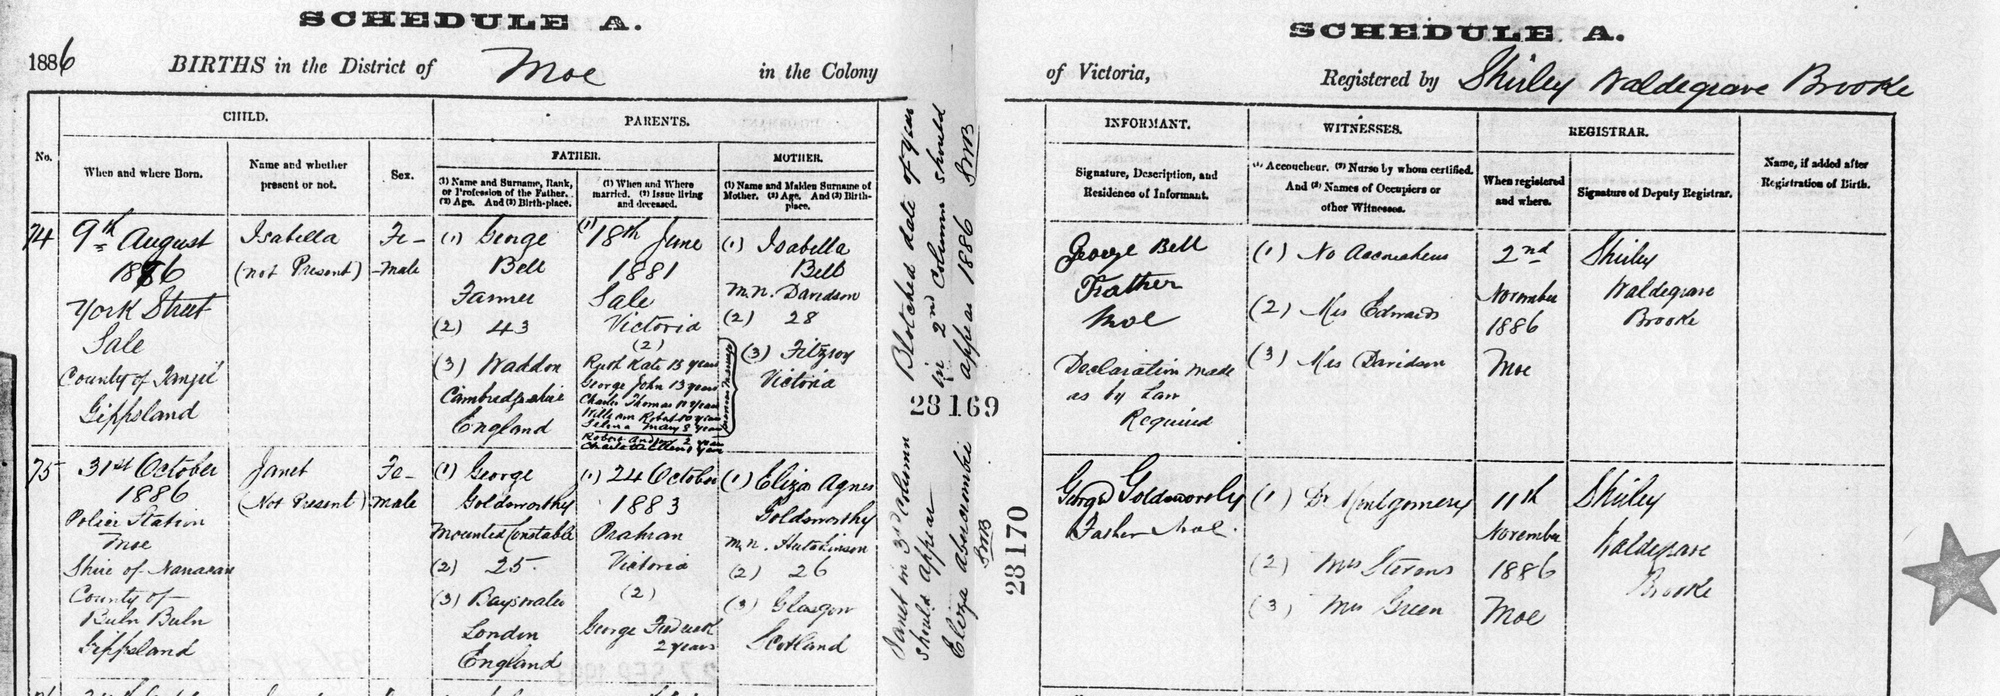 SCHEDULE A.
1886 BIRTHS in the District of Moe in the Colony
CHILD.
PARENTS.
FATHER.
MOTHER.
No.
When and where Born.
Name and whether
present or not.
Sex.
(1) Name and Surname, Rank,
or Profession of the Father.
(2) Age. And (3) Birth-place.
(1) When and Where
married. (2) Issue living
and deceased.
(1) Name and Maiden Surname of
Mother. (2) Age. And (3) Birth-
place.
74
9th August
1886
York Street
Sale
County of Tanjil
Gippsland
Isabella
(not Present)
Fe-
-male
(1) George
Bell
Farmer
(2) 43
(3) Waddon
Cambridgeshire
England
(1) 18th June
1881
Sale
Victoria
(2)
Ruth Kate 15 years
George John 13 years
Charles Thomas 11 years
William Robert 10 years
Selina Mary 8 years
Robert Andrew 2 years
(1) Isabella
Bell
m.n. Davidson
(2) 28
(3) Fitzroy
Victoria
75
31st October
1886
Police Station
Moe
Shire of Narracan
County of
Buln Buln
Gippsland
Janet
(Not Present)
Fe-
-male
(1) George
Goldsworthy
Mounted Constable
(2) 25.
(3) Bayswater
London
England
(1) 24 October
1883
Prahran
Victoria
(2)
George Frederick
2 years
(1) Eliza Agnes
Goldsworthy
m.n. Hutchinson
(2) 26
(3) Glasgow
Scotland
Blotched date of year
in 2nd Column should
appear 1886 SWB
28169
Janet in 3rd column
should appear
Eliza
SWB
28170
SCHEDULE A.
of Victoria, Registered by Shirley Waldegrave Brooke
INFORMANT.
WITNESSES.
REGISTRAR.
Signature, Description, and
Residence of Informant.
(1) Accoucheur. (2) Nurse by whom certified.
And (3) Names of Occupiers or
other Witnesses.
When registered
and where.
Signature of Deputy Registrar.
Name, if added after
Registration of Birth.
George Bell
Father
Moe
Declaration made
as by Law
Required
(1) No Accoucheur
(2) Mrs Edwards
(3) Mrs Davidson
2nd
November
1886
Moe
Shirley
Waldegrave
Brooke
George Goldsworthy
Father Moe.
(1) Dr Montgomery
(2) Mrs Stevens
(3) Mrs Green
11th
November
1886
Moe
Shirley
Waldegrave
Brooke